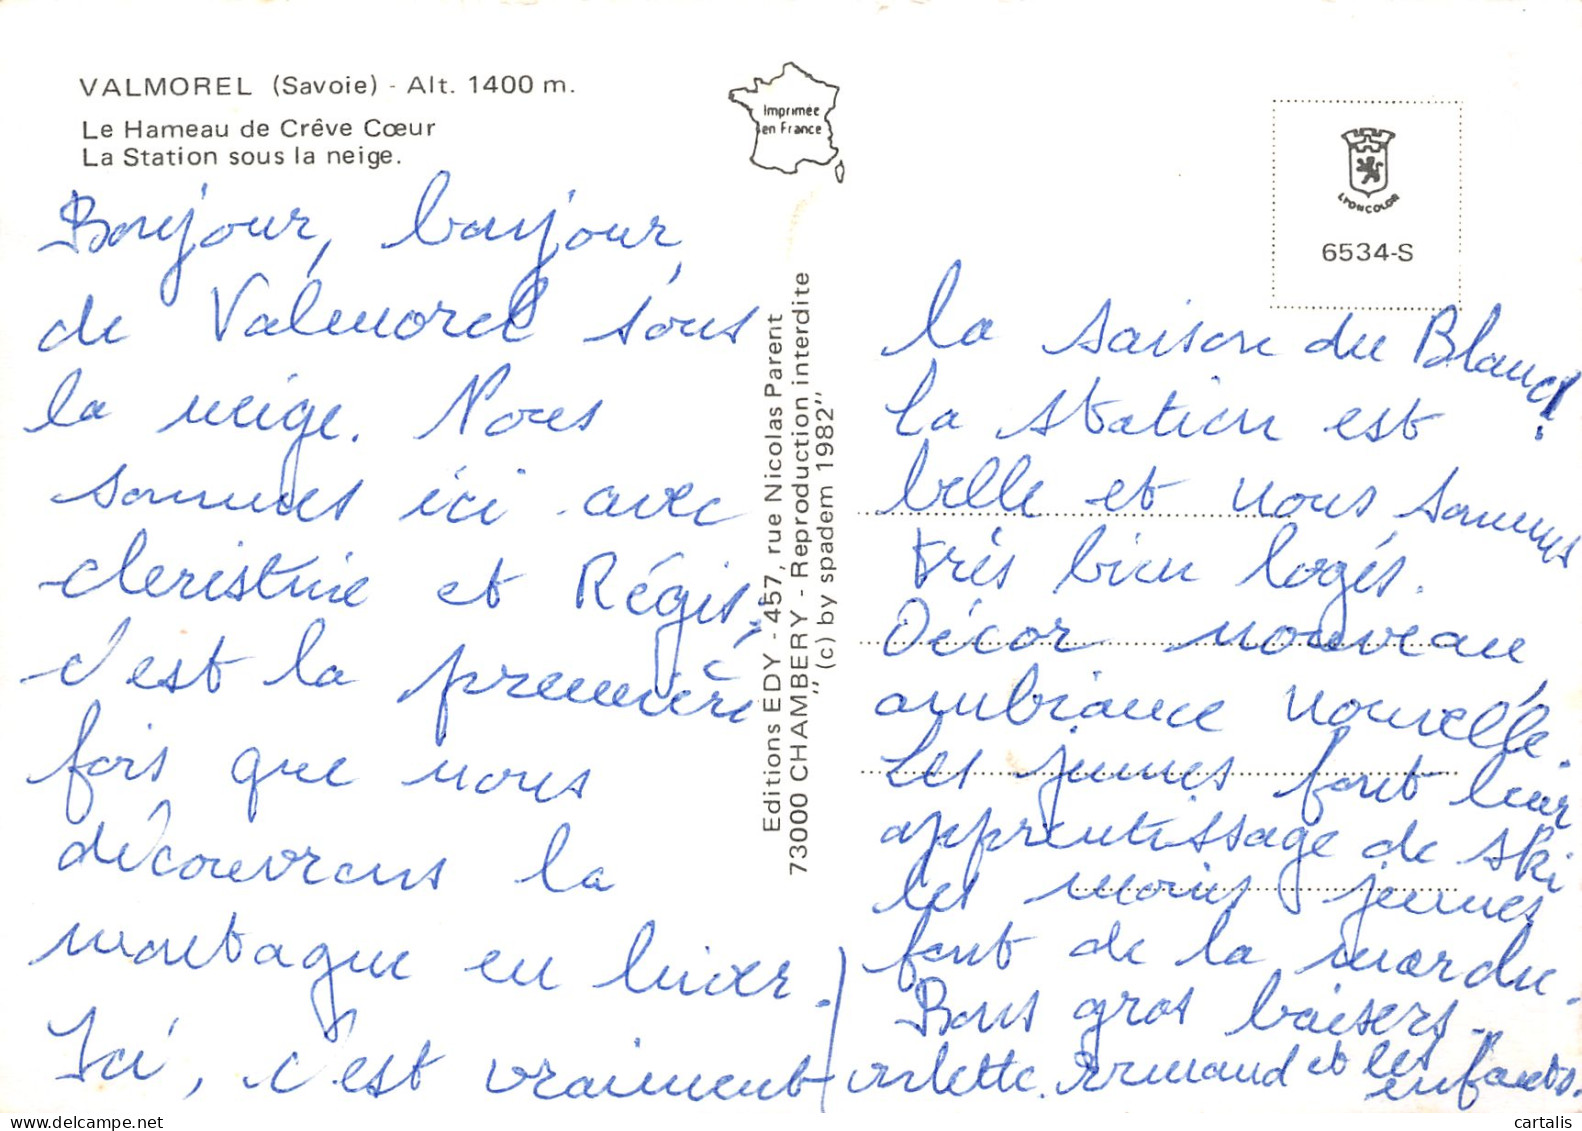 VALMOREL (Savoie) - Alt. 1400 m.
Le Hameau de Crêve Cœur
La Station sous la neige.
Imprimée
en France
LYONCOLOR
6534-S
Editions EDY - 457, rue Nicolas Parent
73000 CHAMBERY - Reproduction interdite
"(c) by spadem 1982"
Bonjour, bonjour,
de Valmorel sous
la neige. Nous
sommes ici avec
christine et Régis,
c'est la première
fois que nous
découvrons la
montagne en hiver.
Ici, c'est vraiment
la saison du Blanc!
la station est
belle et nous sommes
très bien logés.
Décor nouveau
ambiance nouvelle.
Les jeunes font leur
apprentissage de ski
les moins jeunes
font de la marche.
Bons gros baisers.
Arlette. Armand et les
enfants.
cartalis